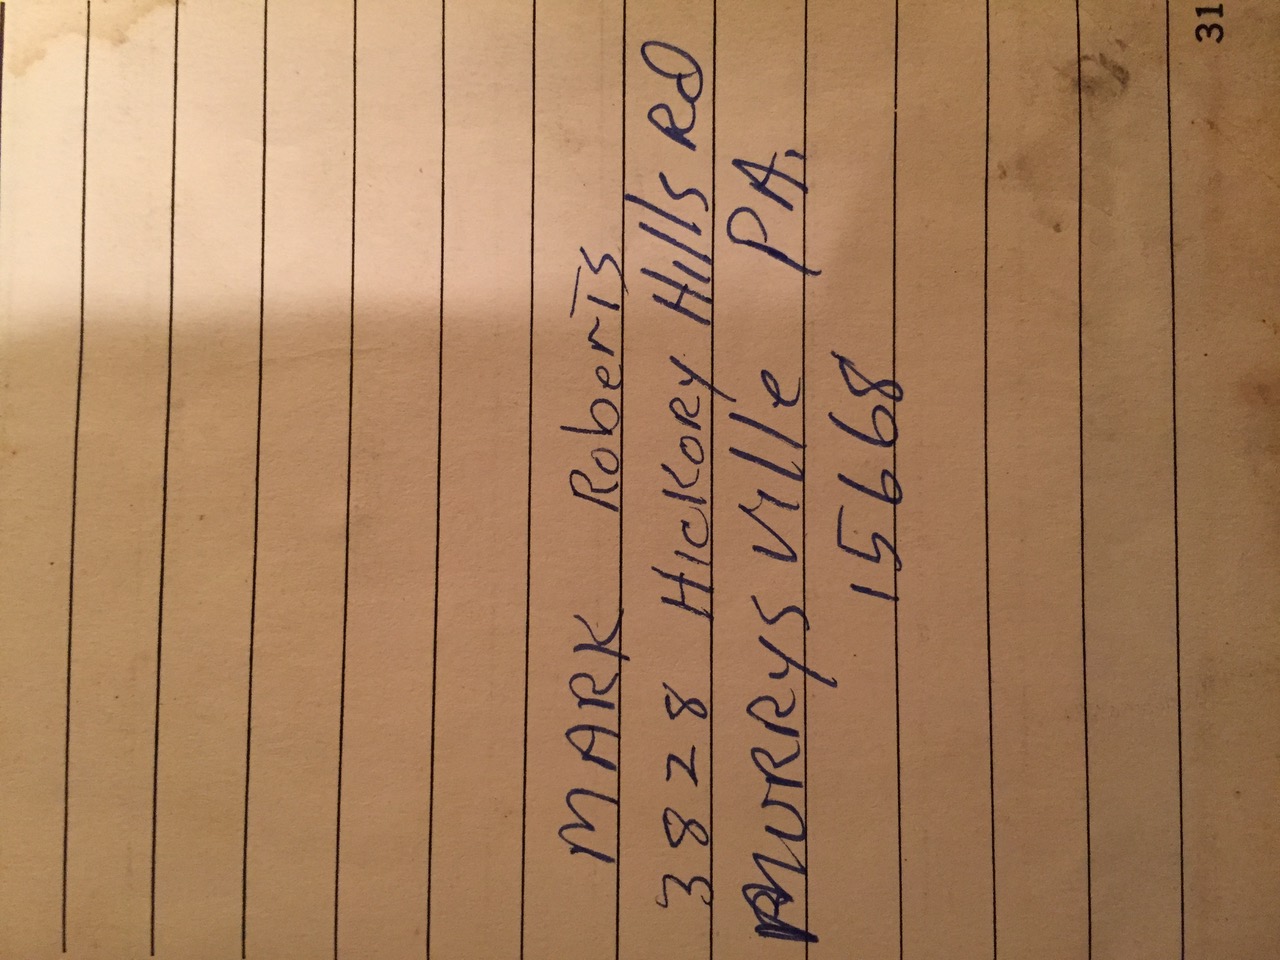 MARK Roberts
3828 Hickory Hills RD
MURRYSVille PA.
15668
31